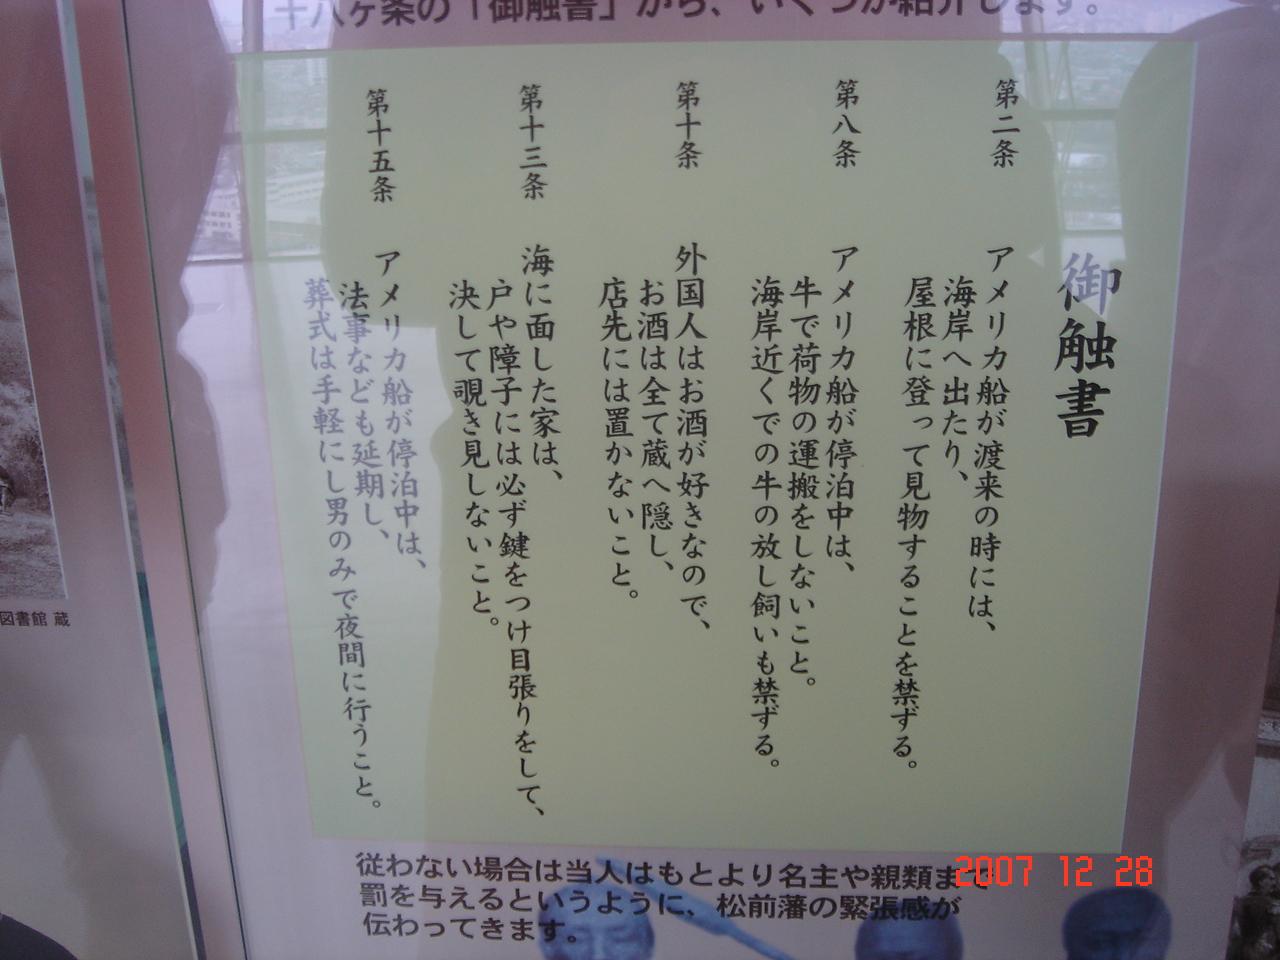 十八ヶ条の「御触書」から、いくつか紹介します。
御触書
第二条
アメリカ船が渡来の時には、
海岸へ出たり、
屋根に登って見物することを禁ずる。
第八条
アメリカ船が停泊中は、
牛で荷物の運搬をしないこと。
海岸近くでの牛の放し飼いも禁ずる。
第十条
外国人はお酒が好きなので、
お酒は全て蔵へ隠し、
店先には置かないこと。
第十三条
海に面した家は、
戸や障子には必ず鍵をつけ目張りをして、
決して覗き見しないこと。
第十五条
アメリカ船が停泊中は、
法事なども延期し、
葬式は手軽にし男のみで夜間に行うこと。
従わない場合は当人はもとより名主や親類まで
罰を与えるというように、松前藩の緊張感が
伝わってきます。
図書館 蔵
2007 12 28